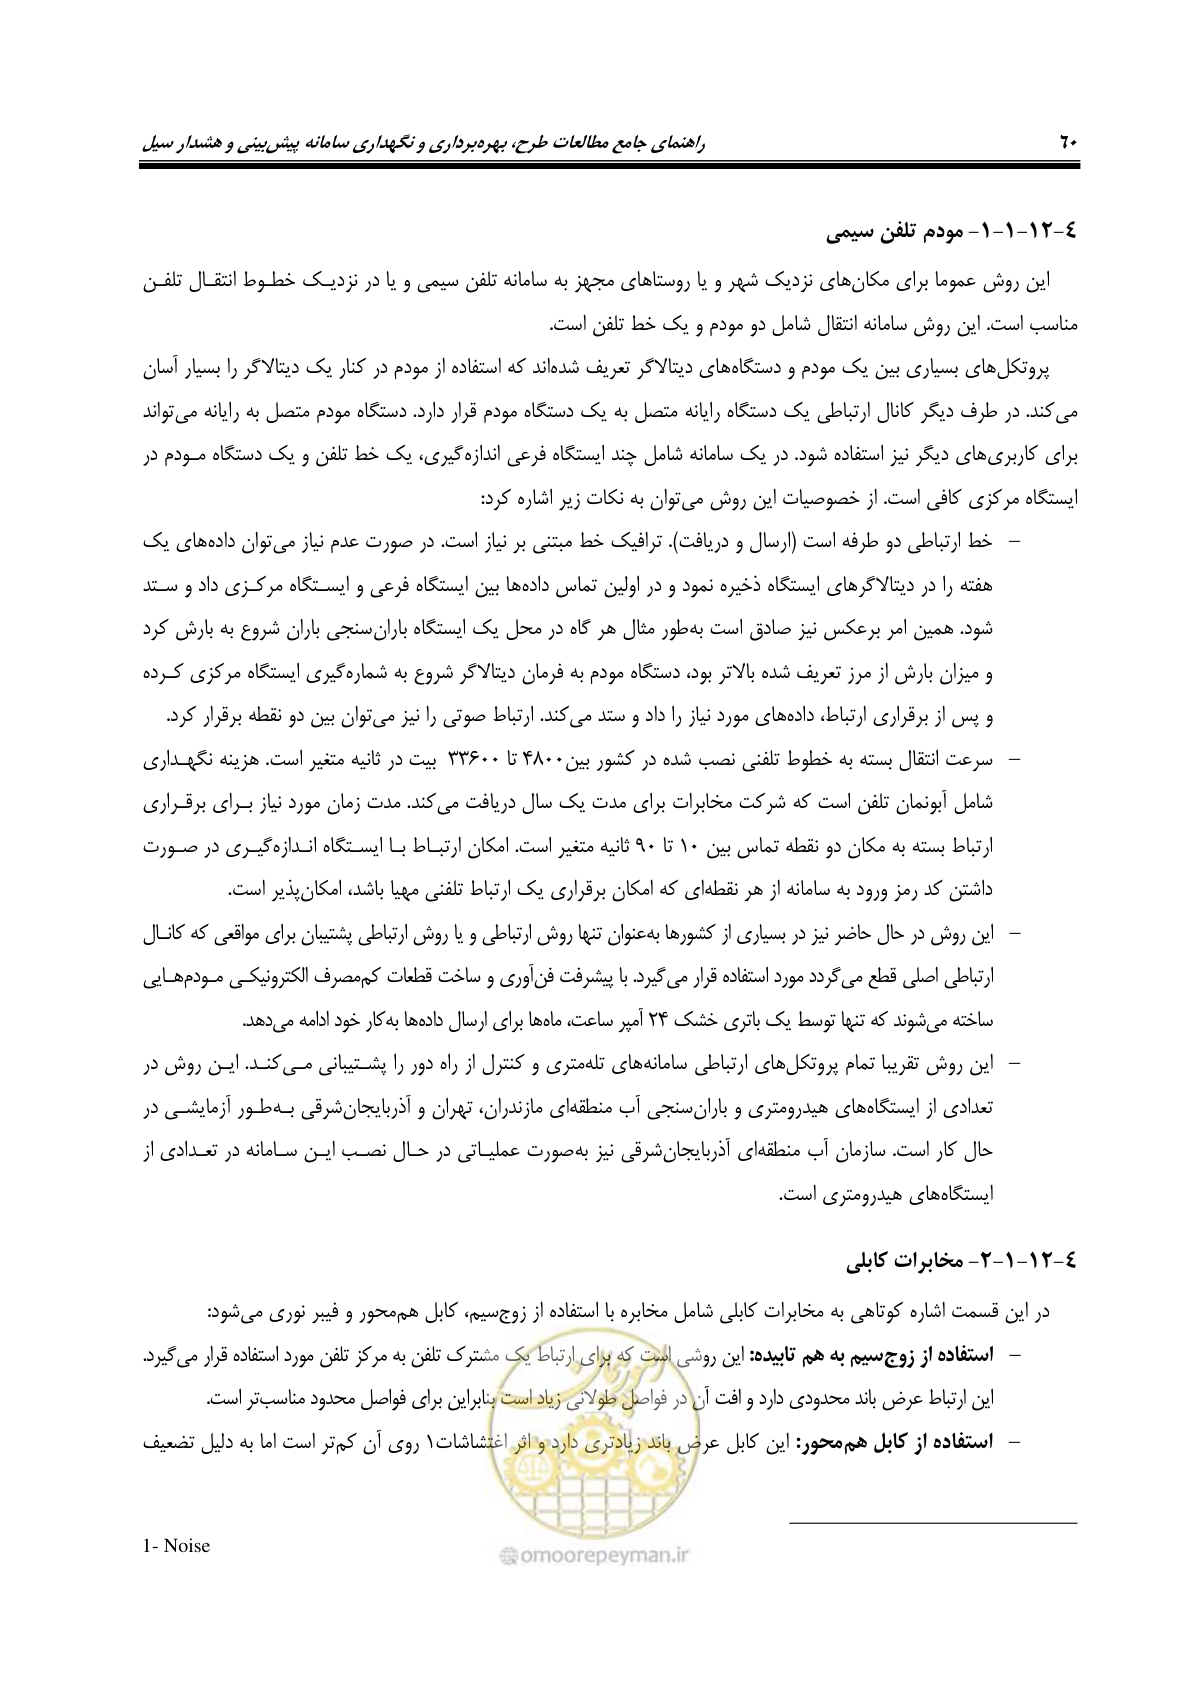 راهنمای جامع مطالعات طرح، بهره‌برداری و نگهداری سامانه پیش‌بینی و هشدار سیل
۶۰
۴-۱۲-۱-۱- مودم تلفن سیمی
این روش عموما برای مکان‌های نزدیک شهر و یا روستاهای مجهز به سامانه تلفن سیمی و یا در نزدیک خطوط انتقال تلفن
مناسب است. این روش سامانه انتقال شامل دو مودم و یک خط تلفن است.
پروتکل‌های بسیاری بین یک مودم و دستگاه‌های دیتالاگر تعریف شده‌اند که استفاده از مودم در کنار یک دیتالاگر را بسیار آسان
می‌کند. در طرف دیگر کانال ارتباطی یک دستگاه رایانه متصل به یک دستگاه مودم قرار دارد. دستگاه مودم متصل به رایانه می‌تواند
برای کاربری‌های دیگر نیز استفاده شود. در یک سامانه شامل چند ایستگاه فرعی اندازه‌گیری، یک خط تلفن و یک دستگاه مودم در
ایستگاه مرکزی کافی است. از خصوصیات این روش می‌توان به نکات زیر اشاره کرد:
– خط ارتباطی دو طرفه است (ارسال و دریافت). ترافیک خط مبتنی بر نیاز است. در صورت عدم نیاز می‌توان داده‌های یک
هفته را در دیتالاگرهای ایستگاه ذخیره نمود و در اولین تماس داده‌ها بین ایستگاه فرعی و ایستگاه مرکزی داد و ستد
شود. همین امر برعکس نیز صادق است به‌طور مثال هر گاه در محل یک ایستگاه باران‌سنجی باران شروع به بارش کرد
و میزان بارش از مرز تعریف شده بالاتر بود، دستگاه مودم به فرمان دیتالاگر شروع به شماره‌گیری ایستگاه مرکزی کرده
و پس از برقراری ارتباط، داده‌های مورد نیاز را داد و ستد می‌کند. ارتباط صوتی را نیز می‌توان بین دو نقطه برقرار کرد.
– سرعت انتقال بسته به خطوط تلفنی نصب شده در کشور بین۴۸۰۰ تا ۳۳۶۰۰ بیت در ثانیه متغیر است. هزینه نگهداری
شامل آبونمان تلفن است که شرکت مخابرات برای مدت یک سال دریافت می‌کند. مدت زمان مورد نیاز برای برقراری
ارتباط بسته به مکان دو نقطه تماس بین ۱۰ تا ۹۰ ثانیه متغیر است. امکان ارتباط با ایستگاه اندازه‌گیری در صورت
داشتن کد رمز ورود به سامانه از هر نقطه‌ای که امکان برقراری یک ارتباط تلفنی مهیا باشد، امکان‌پذیر است.
– این روش در حال حاضر نیز در بسیاری از کشورها به‌عنوان تنها روش ارتباطی و یا روش ارتباطی پشتیبان برای مواقعی که کانال
ارتباطی اصلی قطع می‌گردد مورد استفاده قرار می‌گیرد. با پیشرفت فن‌آوری و ساخت قطعات کم‌مصرف الکترونیکی مودم‌هایی
ساخته می‌شوند که تنها توسط یک باتری خشک ۲۴ آمپر ساعت، ماه‌ها برای ارسال داده‌ها به‌کار خود ادامه می‌دهد.
– این روش تقریبا تمام پروتکل‌های ارتباطی سامانه‌های تله‌متری و کنترل از راه دور را پشتیبانی می‌کند. این روش در
تعدادی از ایستگاه‌های هیدرومتری و باران‌سنجی آب منطقه‌ای مازندران، تهران و آذربایجان‌شرقی به‌طور آزمایشی در
حال کار است. سازمان آب منطقه‌ای آذربایجان‌شرقی نیز به‌صورت عملیاتی در حال نصب این سامانه در تعدادی از
ایستگاه‌های هیدرومتری است.
۴-۱۲-۱-۲- مخابرات کابلی
در این قسمت اشاره کوتاهی به مخابرات کابلی شامل مخابره با استفاده از زوج‌سیم، کابل هم‌محور و فیبر نوری می‌شود:
– استفاده از زوج‌سیم به هم تابیده: این روشی است که برای ارتباط یک مشترک تلفن به مرکز تلفن مورد استفاده قرار می‌گیرد.
این ارتباط عرض باند محدودی دارد و افت آن در فواصل طولانی زیاد است بنابراین برای فواصل محدود مناسب‌تر است.
– استفاده از کابل هم‌محور: این کابل عرض باند زیادتری دارد و اثر اغتشاشات۱ روی آن کم‌تر است اما به دلیل تضعیف
1- Noise
امور پیمان
@omoorepeyman.ir